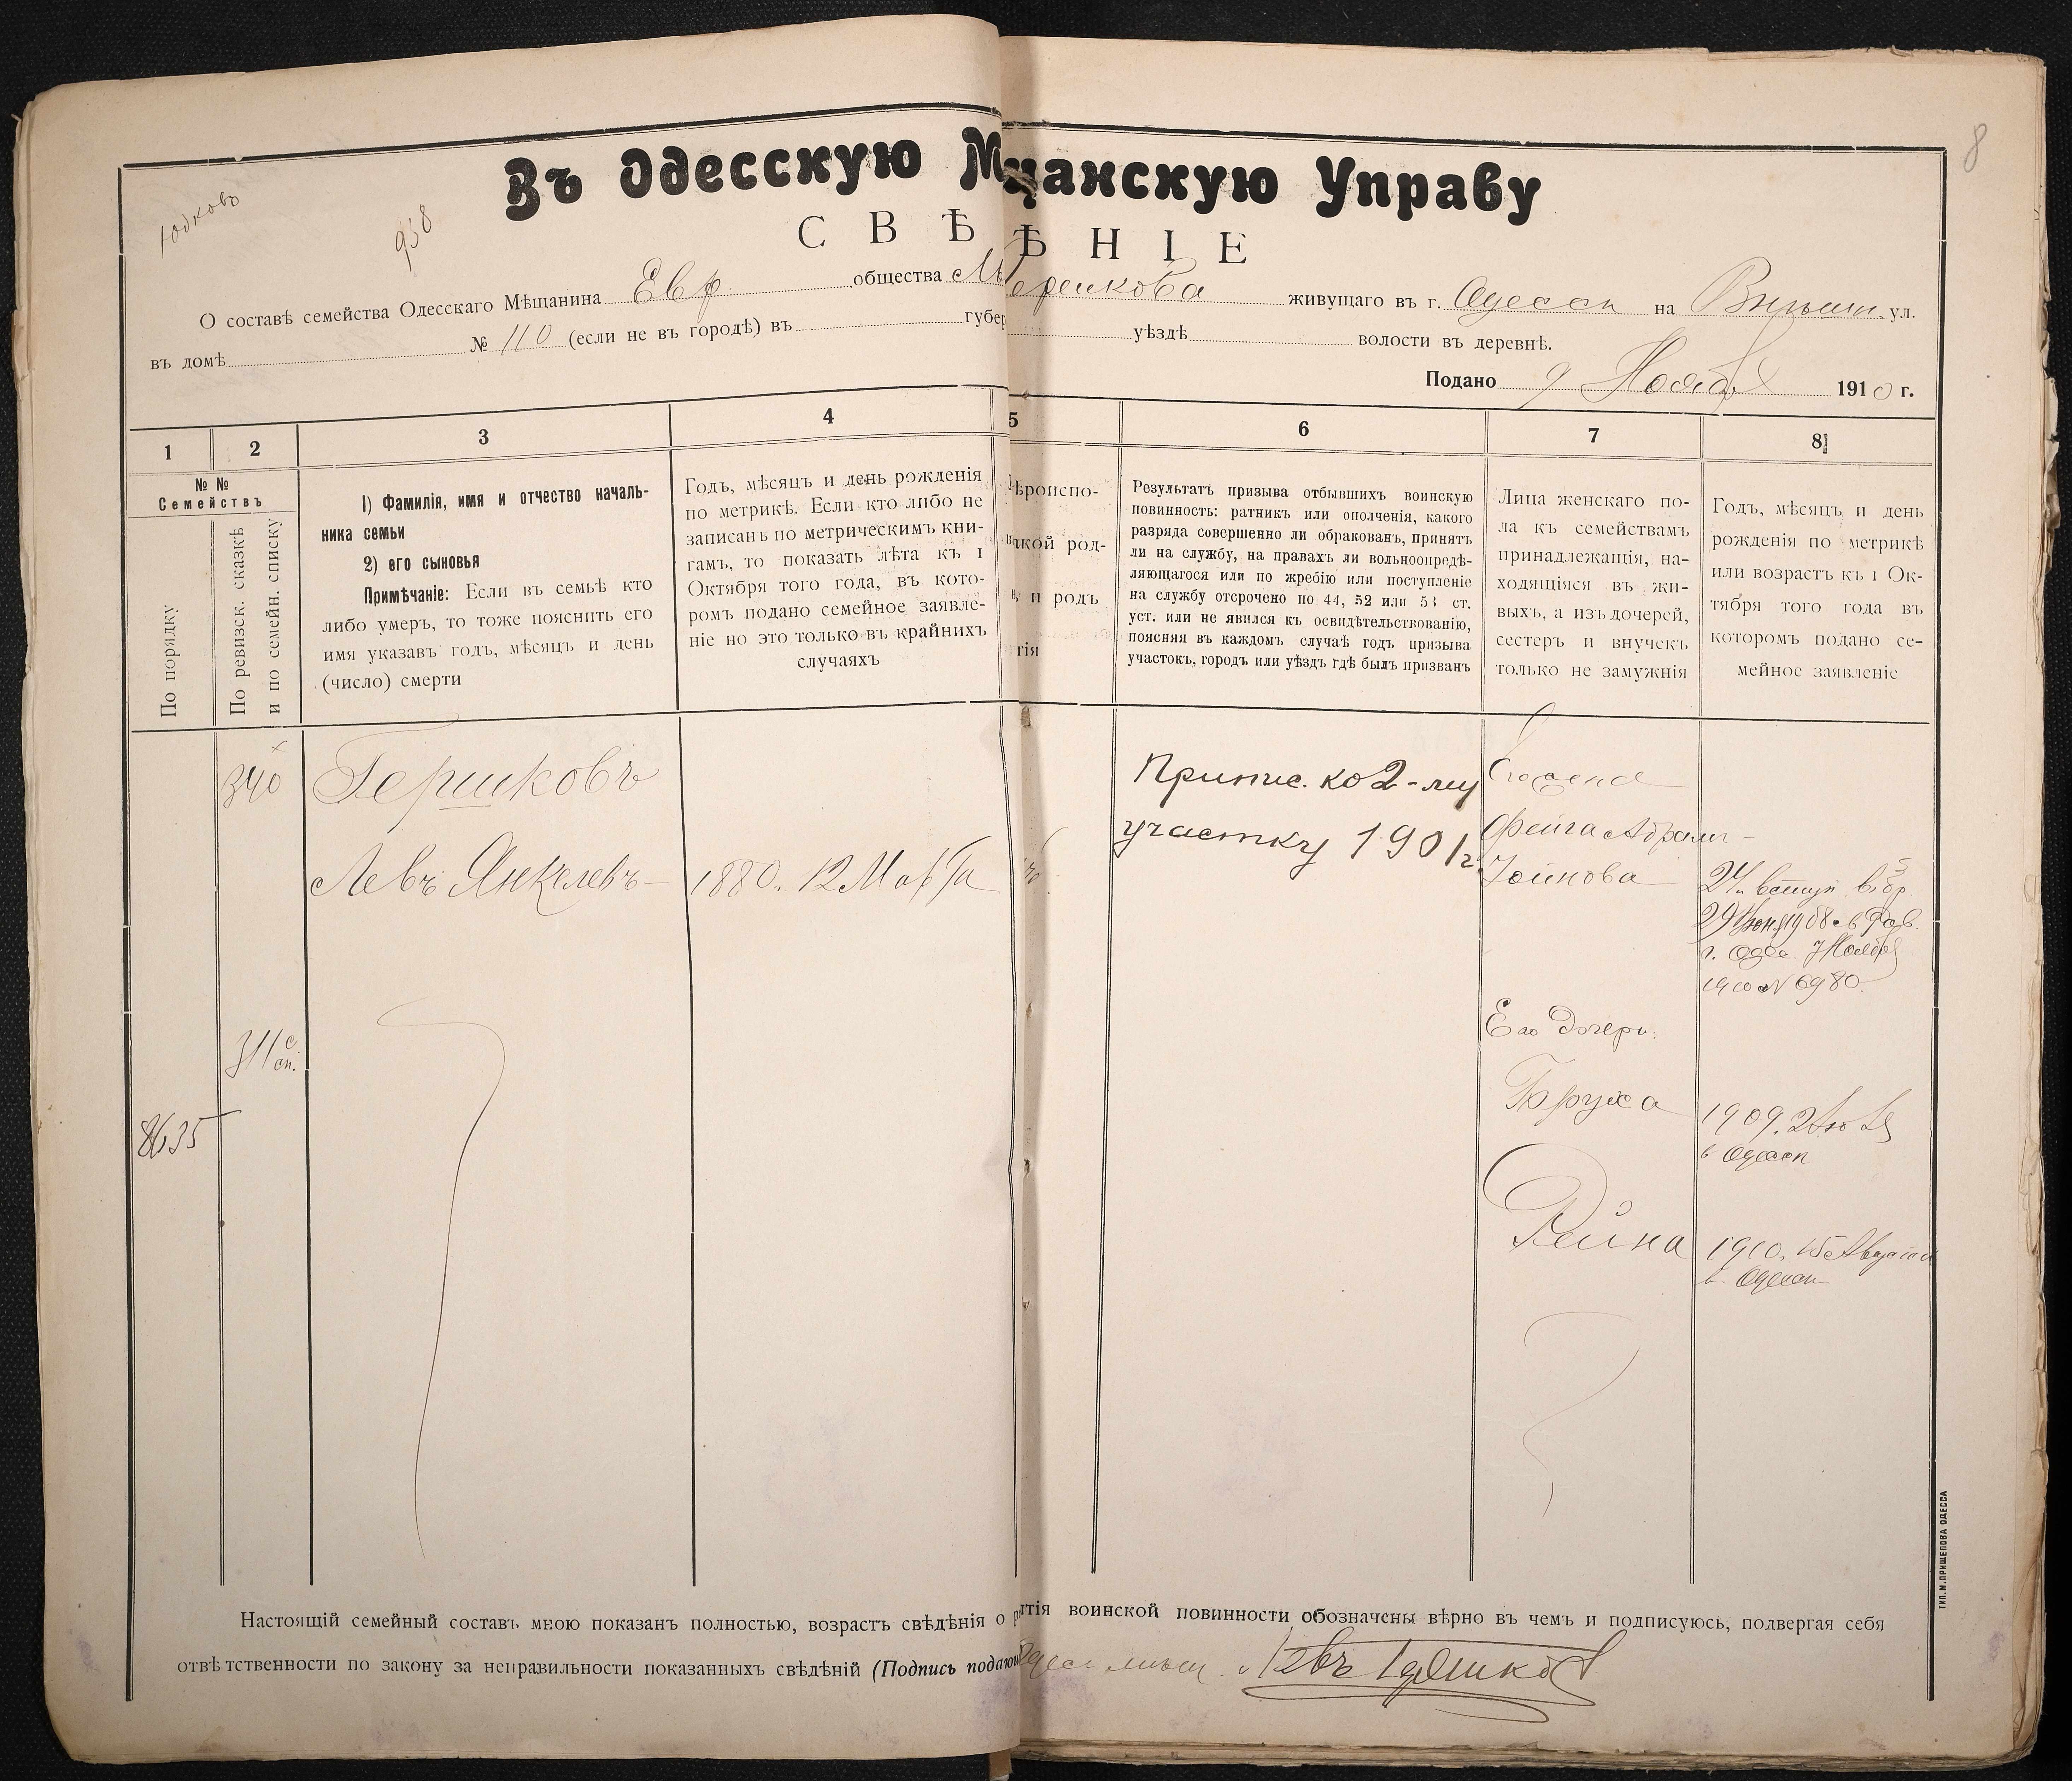 8
Въ Одесскую Мѣщанскую Управу
СВѢДѢНІЕ
938
О составѣ семейства Одесскаго Мѣщанина Евр. общества Гершкова живущаго въ г. Одессѣ на Внѣшн. ул.
въ домѣ № 110 (если не въ городѣ) въ губер уѣздѣ волости въ деревнѣ.
Подано 9 Ноября 1910 г.
1 2 3 4 5 6 7 8
№ №
Семействъ
По порядку
По ревизск. сказкѣ
и по семейн. списку
1) Фамилія, имя и отчество началь-
ника семьи
2) его сыновья
Примѣчаніе: Если въ семьѣ кто
либо умеръ, то тоже пояснить его
имя указавъ годъ, мѣсяцъ и день
(число) смерти
Годъ, мѣсяцъ и день рожденія
по метрикѣ. Если кто либо не
записанъ по метрическимъ кни-
гамъ, то показать лѣта къ 1
Октября того года, въ кото-
ромъ подано семейное заявле-
ніе но это только въ крайнихъ
случаяхъ
ѣроиспо-
акой род-
и родъ
гія
Результатъ призыва отбывшихъ воинскую
повинность: ратникъ или ополченія, какого
разряда совершенно ли обракованъ, принятъ
ли на службу, на правахъ ли вольноопредѣ-
ляющагося или по жребію или поступленіе
на службу отсрочено по 44, 52 или 53 ст.
уст. или не явился къ освидѣтельствованію,
поясняя въ каждомъ случаѣ годъ призыва
участокъ, городъ или уѣздъ гдѣ былъ призванъ
Лица женскаго по-
ла къ семействамъ
принадлежащія, на-
ходящіяся въ жи-
выхъ, а изъ дочерей,
сестеръ и внучекъ
только не замужнія
Годъ, мѣсяцъ и день
рожденія по метрикѣ
или возрастъ къ 1 Ок-
тября того года въ
которомъ подано се-
мейное заявленіе
340
Гершковъ
Левъ Янкелевъ
1880. 12 Марта
Припис. ко 2-му
участку 1901 г.
Фейга Абрам-
Хоинова
24 л. вступ. в бр.
29 Іюня 1908 в Рав.
г. Одес. 7 Ноября
1910 № 6980.
311 сп.
Его дочери:
8635
Бруха
1909. 2 Іюля
в Одессѣ
Рейна
1910. 15 Августа
в Одессѣ
Настоящій семейный составъ мною показанъ полностью, возрастъ свѣдѣнія о ртія воинской повинности обозначены вѣрно въ чемъ и подписуюсь, подвергая себя
отвѣтственности по закону за неправильности показанныхъ свѣдѣній (Подпись подаю Одес. мѣщ. Левъ Гершков
ТИП. М. ПРИЩЕПОВА ОДЕССА